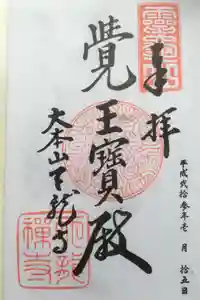 奉拝
平成弐拾参年壱月拾五日
覺王寶殿
大本山天龍寺